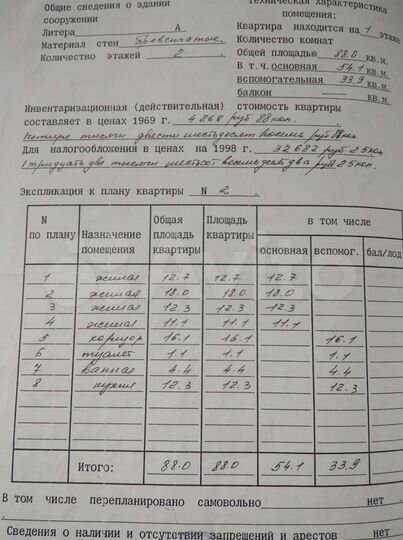 Общие сведения о здании
сооружении
Литера А
Материал стен бревенчатые
Количество этажей 2
Техническая характеристика
помещения:
Квартира находится на 1 этаже
Количество комнат
Общей площадью 88.0 кв.м.
В т.ч. основная 54.1 кв.м.
вспомогательная 33.9 кв.м.
балкон — кв.м.
Инвентаризационная (действительная) стоимость квартиры
составляет в ценах 1969 г. 4268 руб 88 коп.
Четыре тысячи двести шестьдесят восемь руб 88 коп
Для налогообложения в ценах на 1998 г. 32682 руб 25 коп
(тридцать две тысячи шестьсот восемьдесят два руб 25 коп.
Экспликация к плану квартиры N 2 .
N по плану Назначение помещения Общая площадь квартиры Площадь квартиры в том числе
основная вспомог. бал/лод
1 жилая 12.7 12.7 12.7
2 жилая 18.0 18.0 18.0
3 жилая 12.3 12.3 12.3
4 жилая 11.1 11.1 11.1
5 коридор 16.1 16.1 16.1
6 туалет 1.1 1.1 1.1
7 ванная 4.4 4.4 4.4
8 кухня 12.3 12.3 12.3
Итого: 88.0 88.0 54.1 33.9
В том числе перепланировано самовольно нет .
Сведения о наличии и отсутствии запрещений и арестов нет